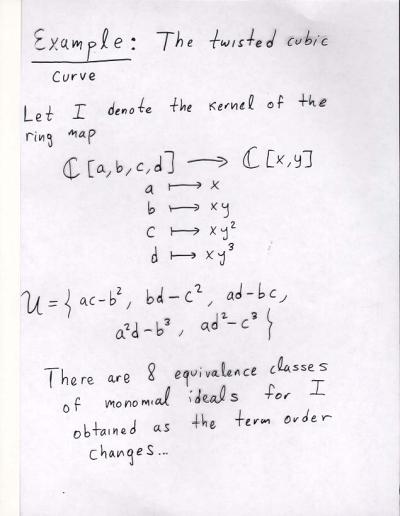 Example: The twisted cubic
curve
Let I denote the kernel of the
ring map
ℂ[a,b,c,d] ⟶ ℂ[x,y]
a ⟼ x
b ⟼ xy
c ⟼ xy²
d ⟼ xy³
U = { ac-b², bd-c², ad-bc,
a²d-b³, ad²-c³ }
There are 8 equivalence classes
of monomial ideals for I
obtained as the term order
changes...